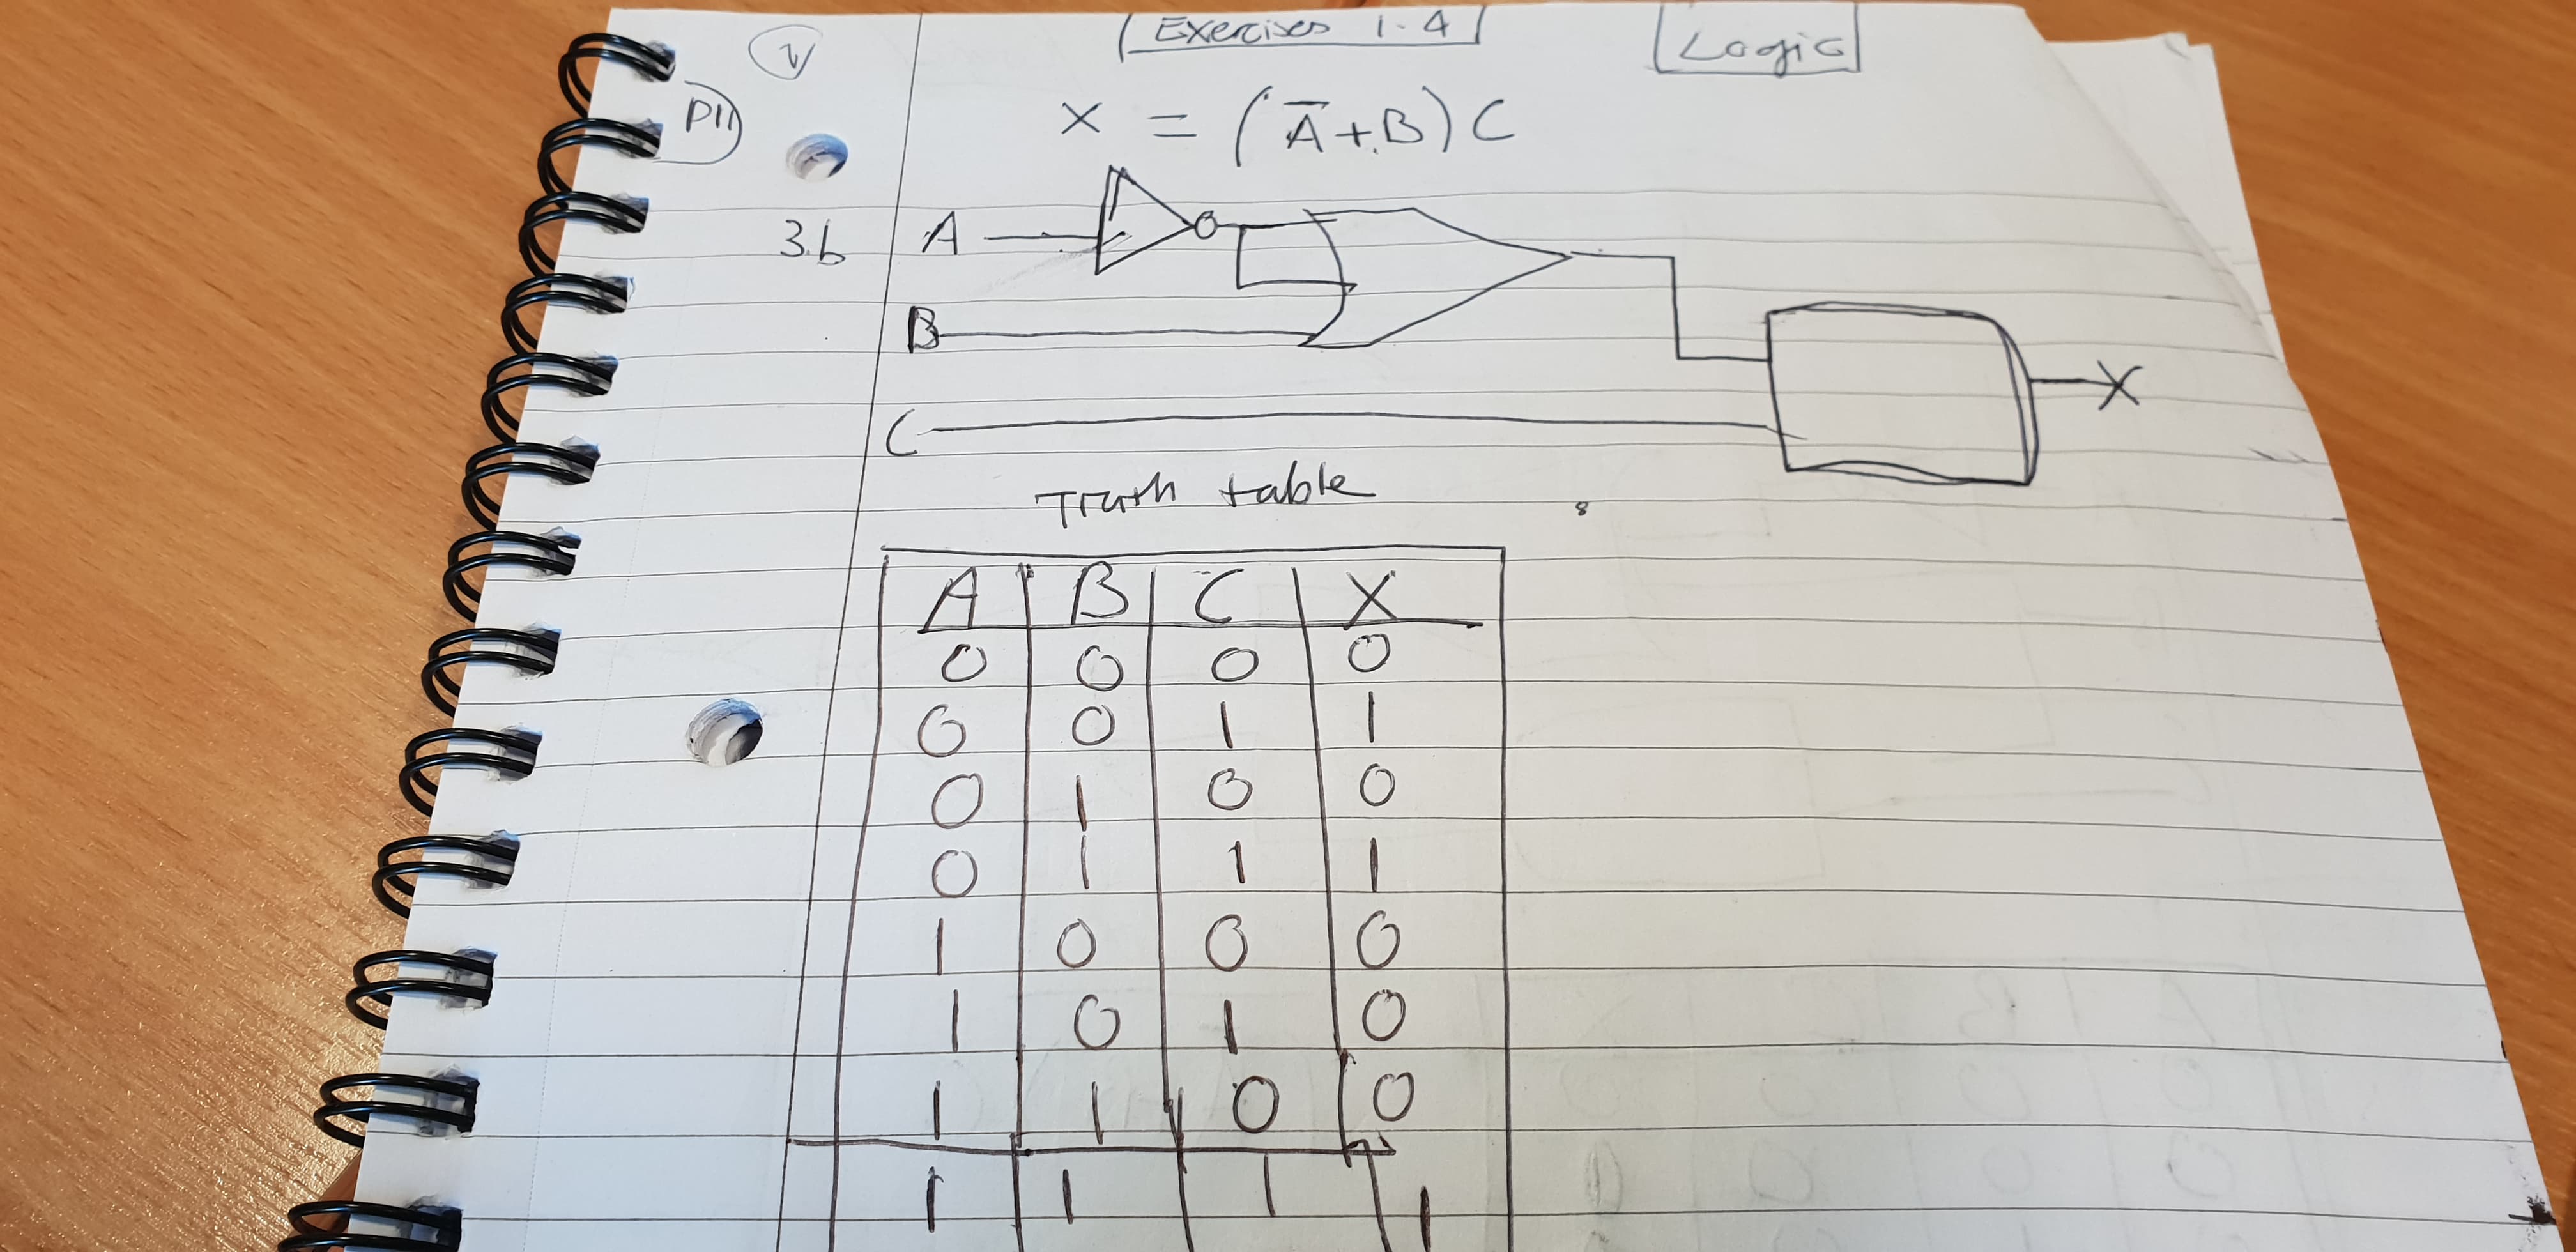 Exercises 1.4
Logic
P11
X = (A̅+B)C
3.b
A
B
C
X
Truth table
A B C X
0 0 0 0
0 0 1 1
0 1 0 0
0 1 1 1
1 0 0 0
1 0 1 0
1 1 0 0
1 1 1 1